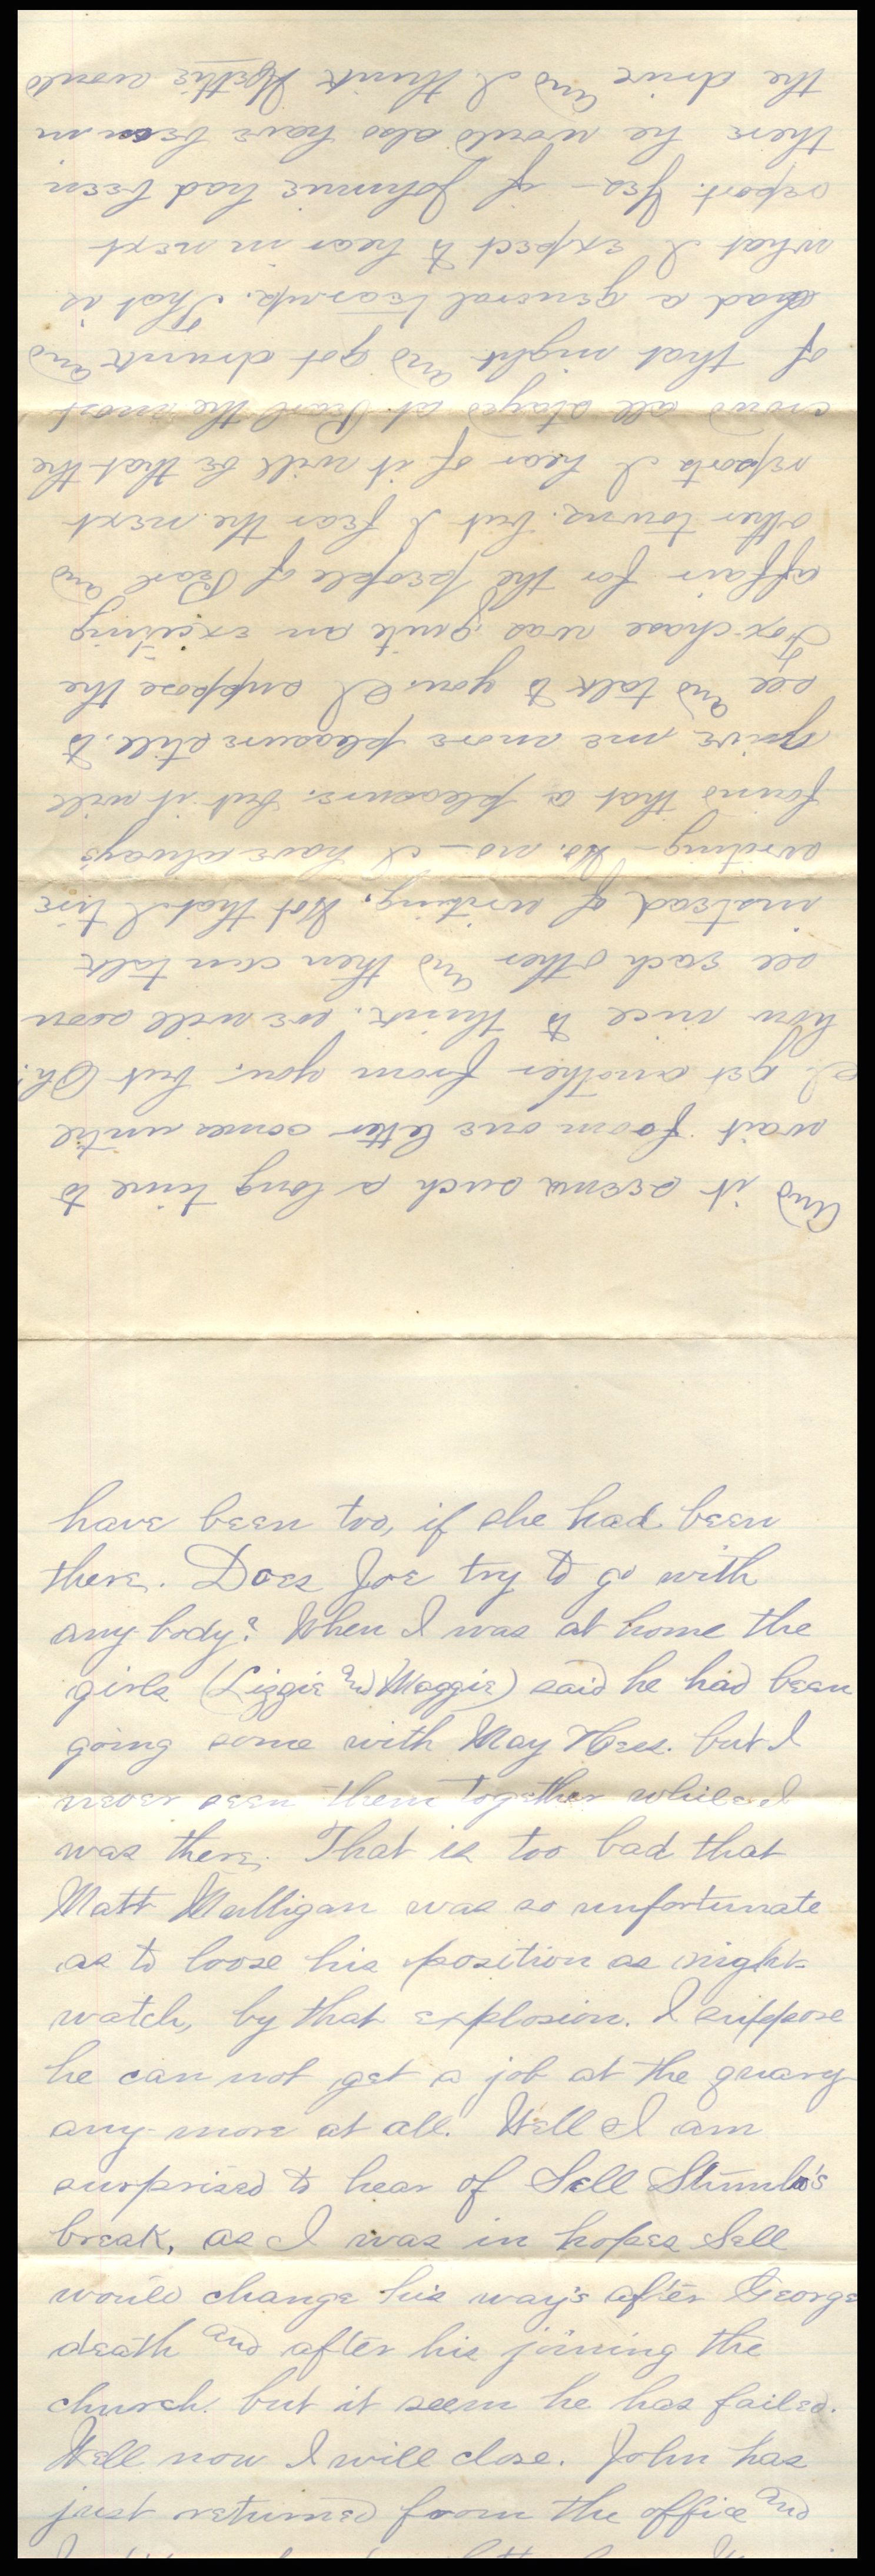 and it seems such a long time to
wait from one letter comes until
I get another from you, but Oh!
how nice to think, we will soon
see each other and then can talk
instead of writing. Not that I tire
writing – No. no – I have always
found that a pleasure, but it will
give me more pleasure still, to
see and talk to you. I suppose the
Fox-chase was quite an exciting
affair for the people of Pearl and
other towns. but I fear the next
reports I hear of it will be that the
crowd all stayed at Pearl the most
of that night and got drunk and
had a general tear-up. That is
what I expect to hear in next
report. Yes – if Johnie had been
there he would also have been in
the drive and I think Nettie would
have been too, if she had been
there. Does Joe try to go with
any body? When I was at home the
girls (Lizzie and Maggie) said he had been
going some with May Hess. but I
never seen them together while I
was there. That is too bad that
Matt Mulligan was so unfortunate
as to loose his position as night-
watch, by that explosion. I suppose
he can not get a job at the quary
any-more at all. Well I am
surprised to hear of Sell Stumbo's
break, as I was in hopes Sell
would change his way's after George
death and after his joining the
church. but it seem he has failed.
Well now I will close. John has
just returned from the office and